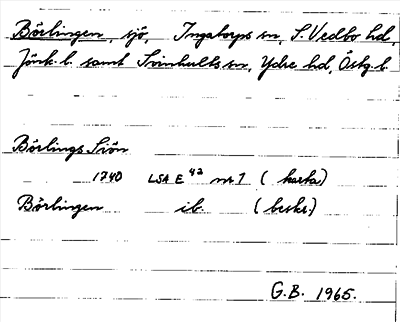 Börlingen, sjö, Ingatorps sn, S. Vedbo hd,
Jönk. l. samt Svinhults sn, Ydre hd, Östg. l.
Börlings Siön
1740 LSA E 43 nr 1 (karta)
Börlingen ib. (beskr.)
G.B. 1965.